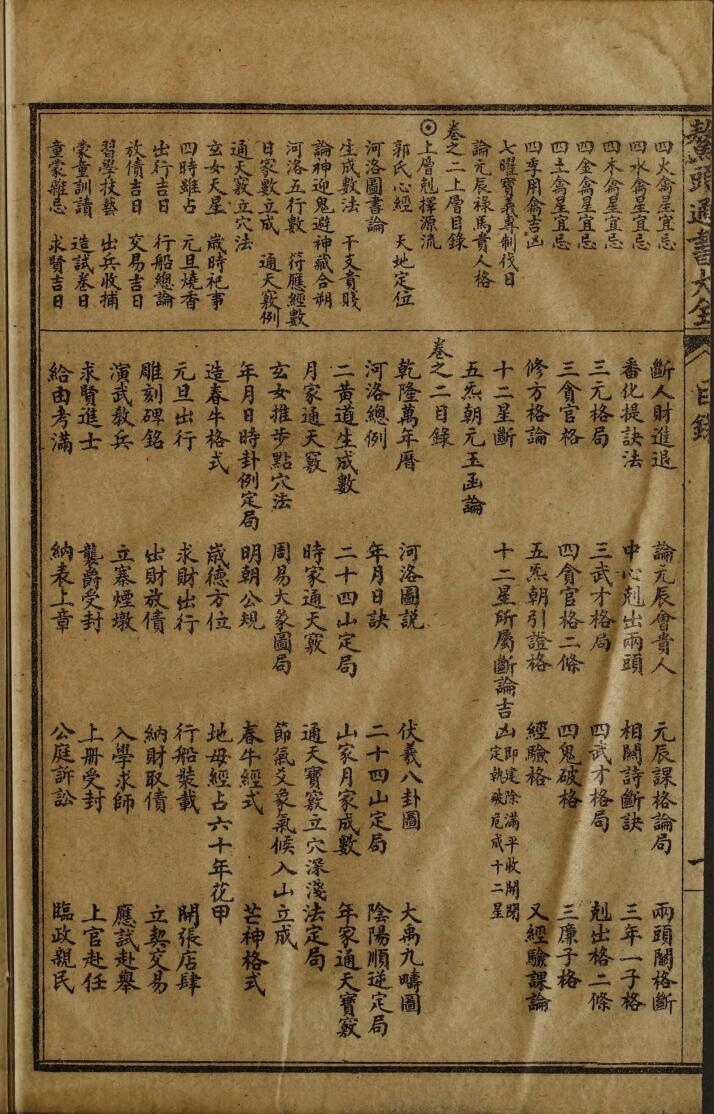 鰲頭通書大全
目錄
一
四火禽星宜忌
四水禽星宜忌
四木禽星宜忌
四金禽星宜忌
四土禽星宜忌
四季用禽吉凶
七曜寶義專制伐日
論元辰祿馬貴人格
卷之二上層目錄
上層剋擇源流
郭氏心經 天地定位
河洛圖書論
生成數法 干支貴賤
論神迎鬼避神藏合朔
河洛五行數 符應經數
日家數立成 通天竅例
通天竅立穴法
玄女天星 歲時祀事
四時雖占 元旦燒香
出行吉日 行船總論
放債吉日 交易吉日
習學技藝 出兵收捕
蒙童訓讀 造試卷日
童蒙雜忌 求賢吉日
斷人財進退 論元辰會貴人 元辰課格論局 兩頭關格斷
番化提訣法 中心剋出兩頭 相關詩斷訣 三年一子格
三元格局 三武才格局 四武才格局 剋出格二條
三貪官格 四貪官格二條 四鬼破格 三廉子格
修方格論 五炁朝引證格 經驗格 又經驗課論
十二星斷 十二星所屬斷論吉凶 即建除滿平收開閉定執破危成十二星
五炁朝元玉函論
卷之二目錄
乾隆萬年曆 河洛圖説 伏羲八卦圖 大禹九疇圖
河洛總例 年月日訣 二十四山定局 陰陽順逆定局
二黃道生成數 二十四山定局 山家月家成數 年家通天寶竅
月家通天竅 時家通天竅 通天寶竅立穴深淺法定局
玄女推步點穴法 周易大象圖局 節氣爻象氣候入山立成
年月日時卦例定局 明朝公規 春牛經式 芒神格式
造春牛格式 歲德方位 地母經占六十年花甲
元旦出行 求財出行 行船裝載 開張店肆
雕刻碑銘 出財放債 納財取債 立契交易
演武教兵 立寨煙墩 入學求師 應試赴舉
求賢進士 襲爵受封 上冊受封 上官赴任
給由考滿 納表上章 公庭訴訟 臨政親民